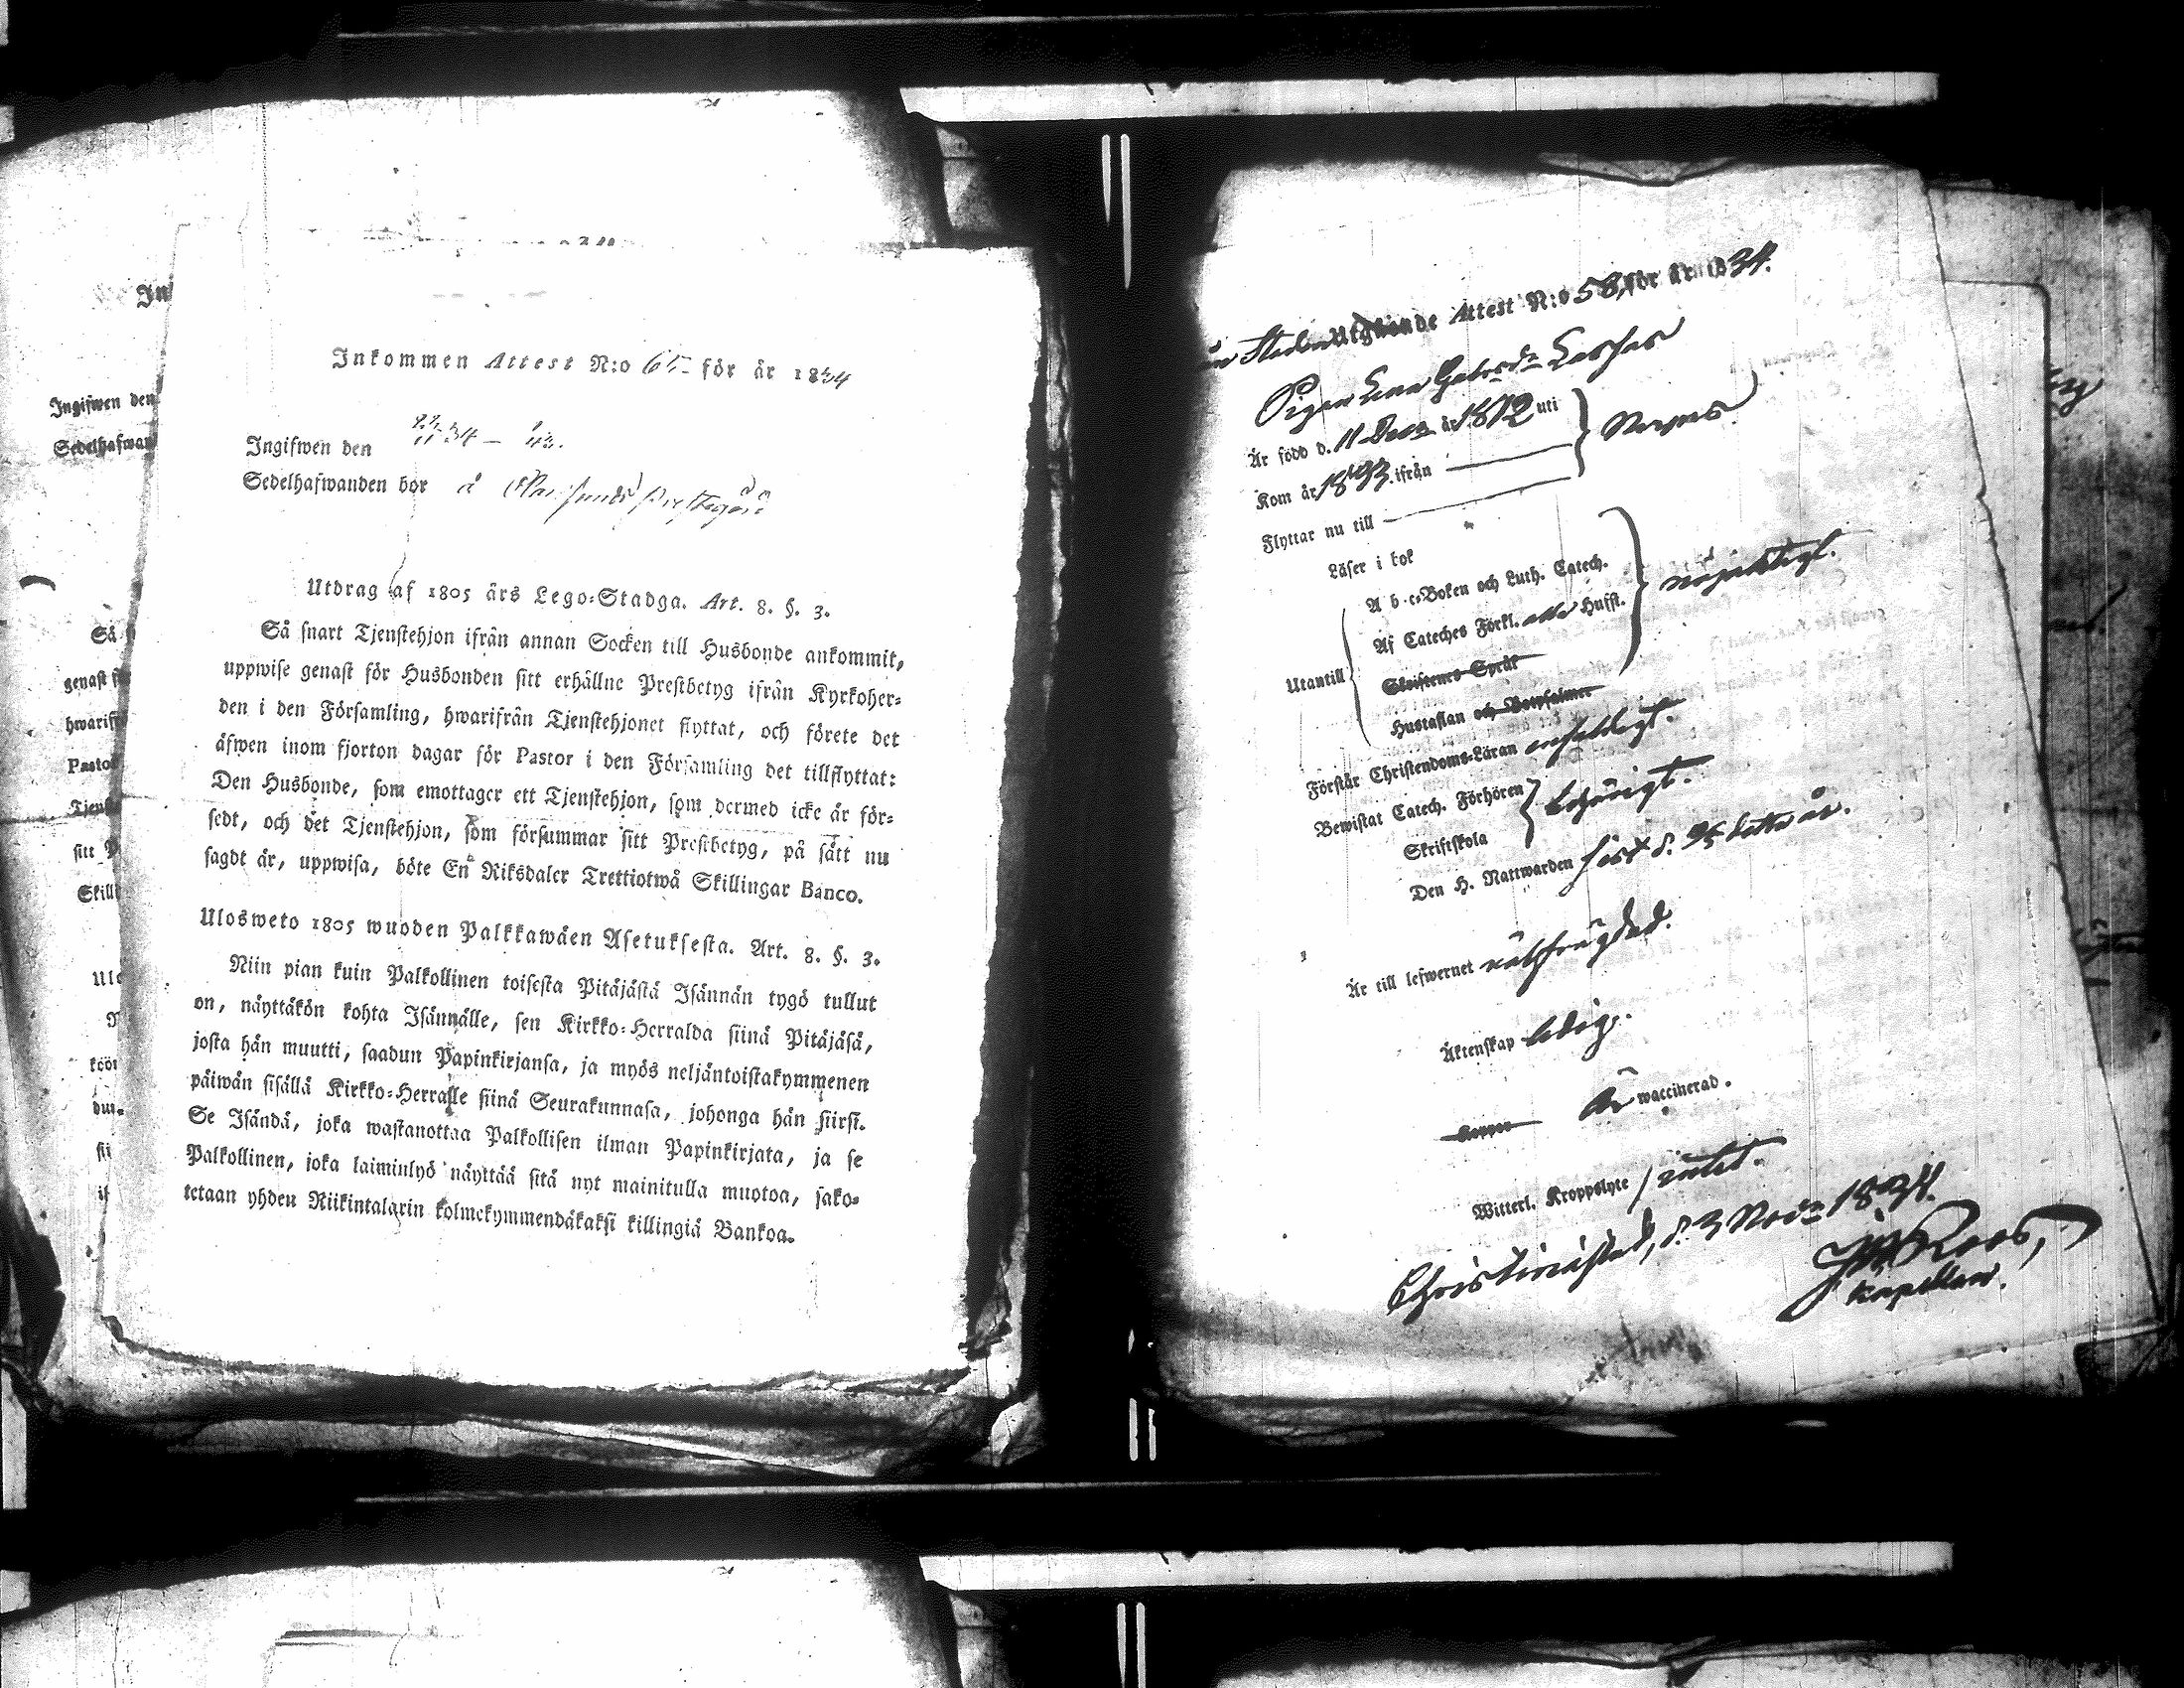 In
Ingifwen den
Sedelhafwan
Så s
genast f
hwarif
Pasto
Tjenst
sitt P
Skill
Ulo
N
köön
dur
sii
Inkommen Attest N:o 65 för år 1834
Ingifwen den
Sedelhafwanden bor å
Utdrag af 1805 års Lego-Stadga. Art. 8. §. 3.
Så snart Tjenstehjon ifrån annan Socken till Husbonde ankommit,
uppwise genast för Husbonden sitt erhållne Prestbetyg ifrån Kyrkoher-
den i den Församling, hwarifrån Tjenstehjonet flyttat, och förete det
äfwen inom fjorton dagar för Pastor i den Församling det tillflyttat:
Den Husbonde, som emottager ett Tjenstehjon, som dermed icke är för-
sedt, och det Tjenstehjon, som försummar sitt Prestbetyg, på sätt nu
sagdt är, uppwisa, böte En Riksdaler Trettiotwå Skillingar Banco.
Ulosweto 1805 wuoden Palkkawäen Asetuksesta. Art. 8. §. 3.
Niin pian kuin Palkollinen toisesta Pitäjästä Isännän tygö tullut
on, näyttäkön kohta Isännälle, sen Kirkko-Herralda siinä Pitäjäsä,
josta hän muutti, saadun Papinkirjansa, ja myös neljäntoistakymmenen
päiwän sisällä Kirkko-Herralle siinä Seurakunnasa, johonga hän siirsi.
Se Isändä, joka wastanottaa Palkollisen ilman Papinkirjata, ja se
Palkollinen, joka laiminlyö näyttää sitä nyt mainitulla muotoa, sako-
tetaan yhden Riikintalarin kolmekymmendäkaksi killingiä Bankoa.
Staden Utgående Attest N:o 58, för år 1834.
Pigan Lena Gabrsdr
Är född d. 11 Decr år 1812 uti
Kom år 1833 ifrån
Flyttar nu till
Läser i bok
A b c-Boken och Luth. Catech.
Af Cateches Förkl. alla Hufst.
nöjaktigt.
Utantill
Skriftenes Språk
Hustaflan och Botpsalmer
Förstår Christendoms-Läran enfaldigt.
Bewistat Catech. Förhören
Skriftskola
behörigt.
Den H. Nattwarden sist d. detta år.
Är till lefwernet wälfrägdad.
Äktenskap ledig.
Koppor Är waccinerad.
Witterl. Kroppslyte intet.
Christinæstad, d. 3 Novr 1834.
Roos,
Kapellan.